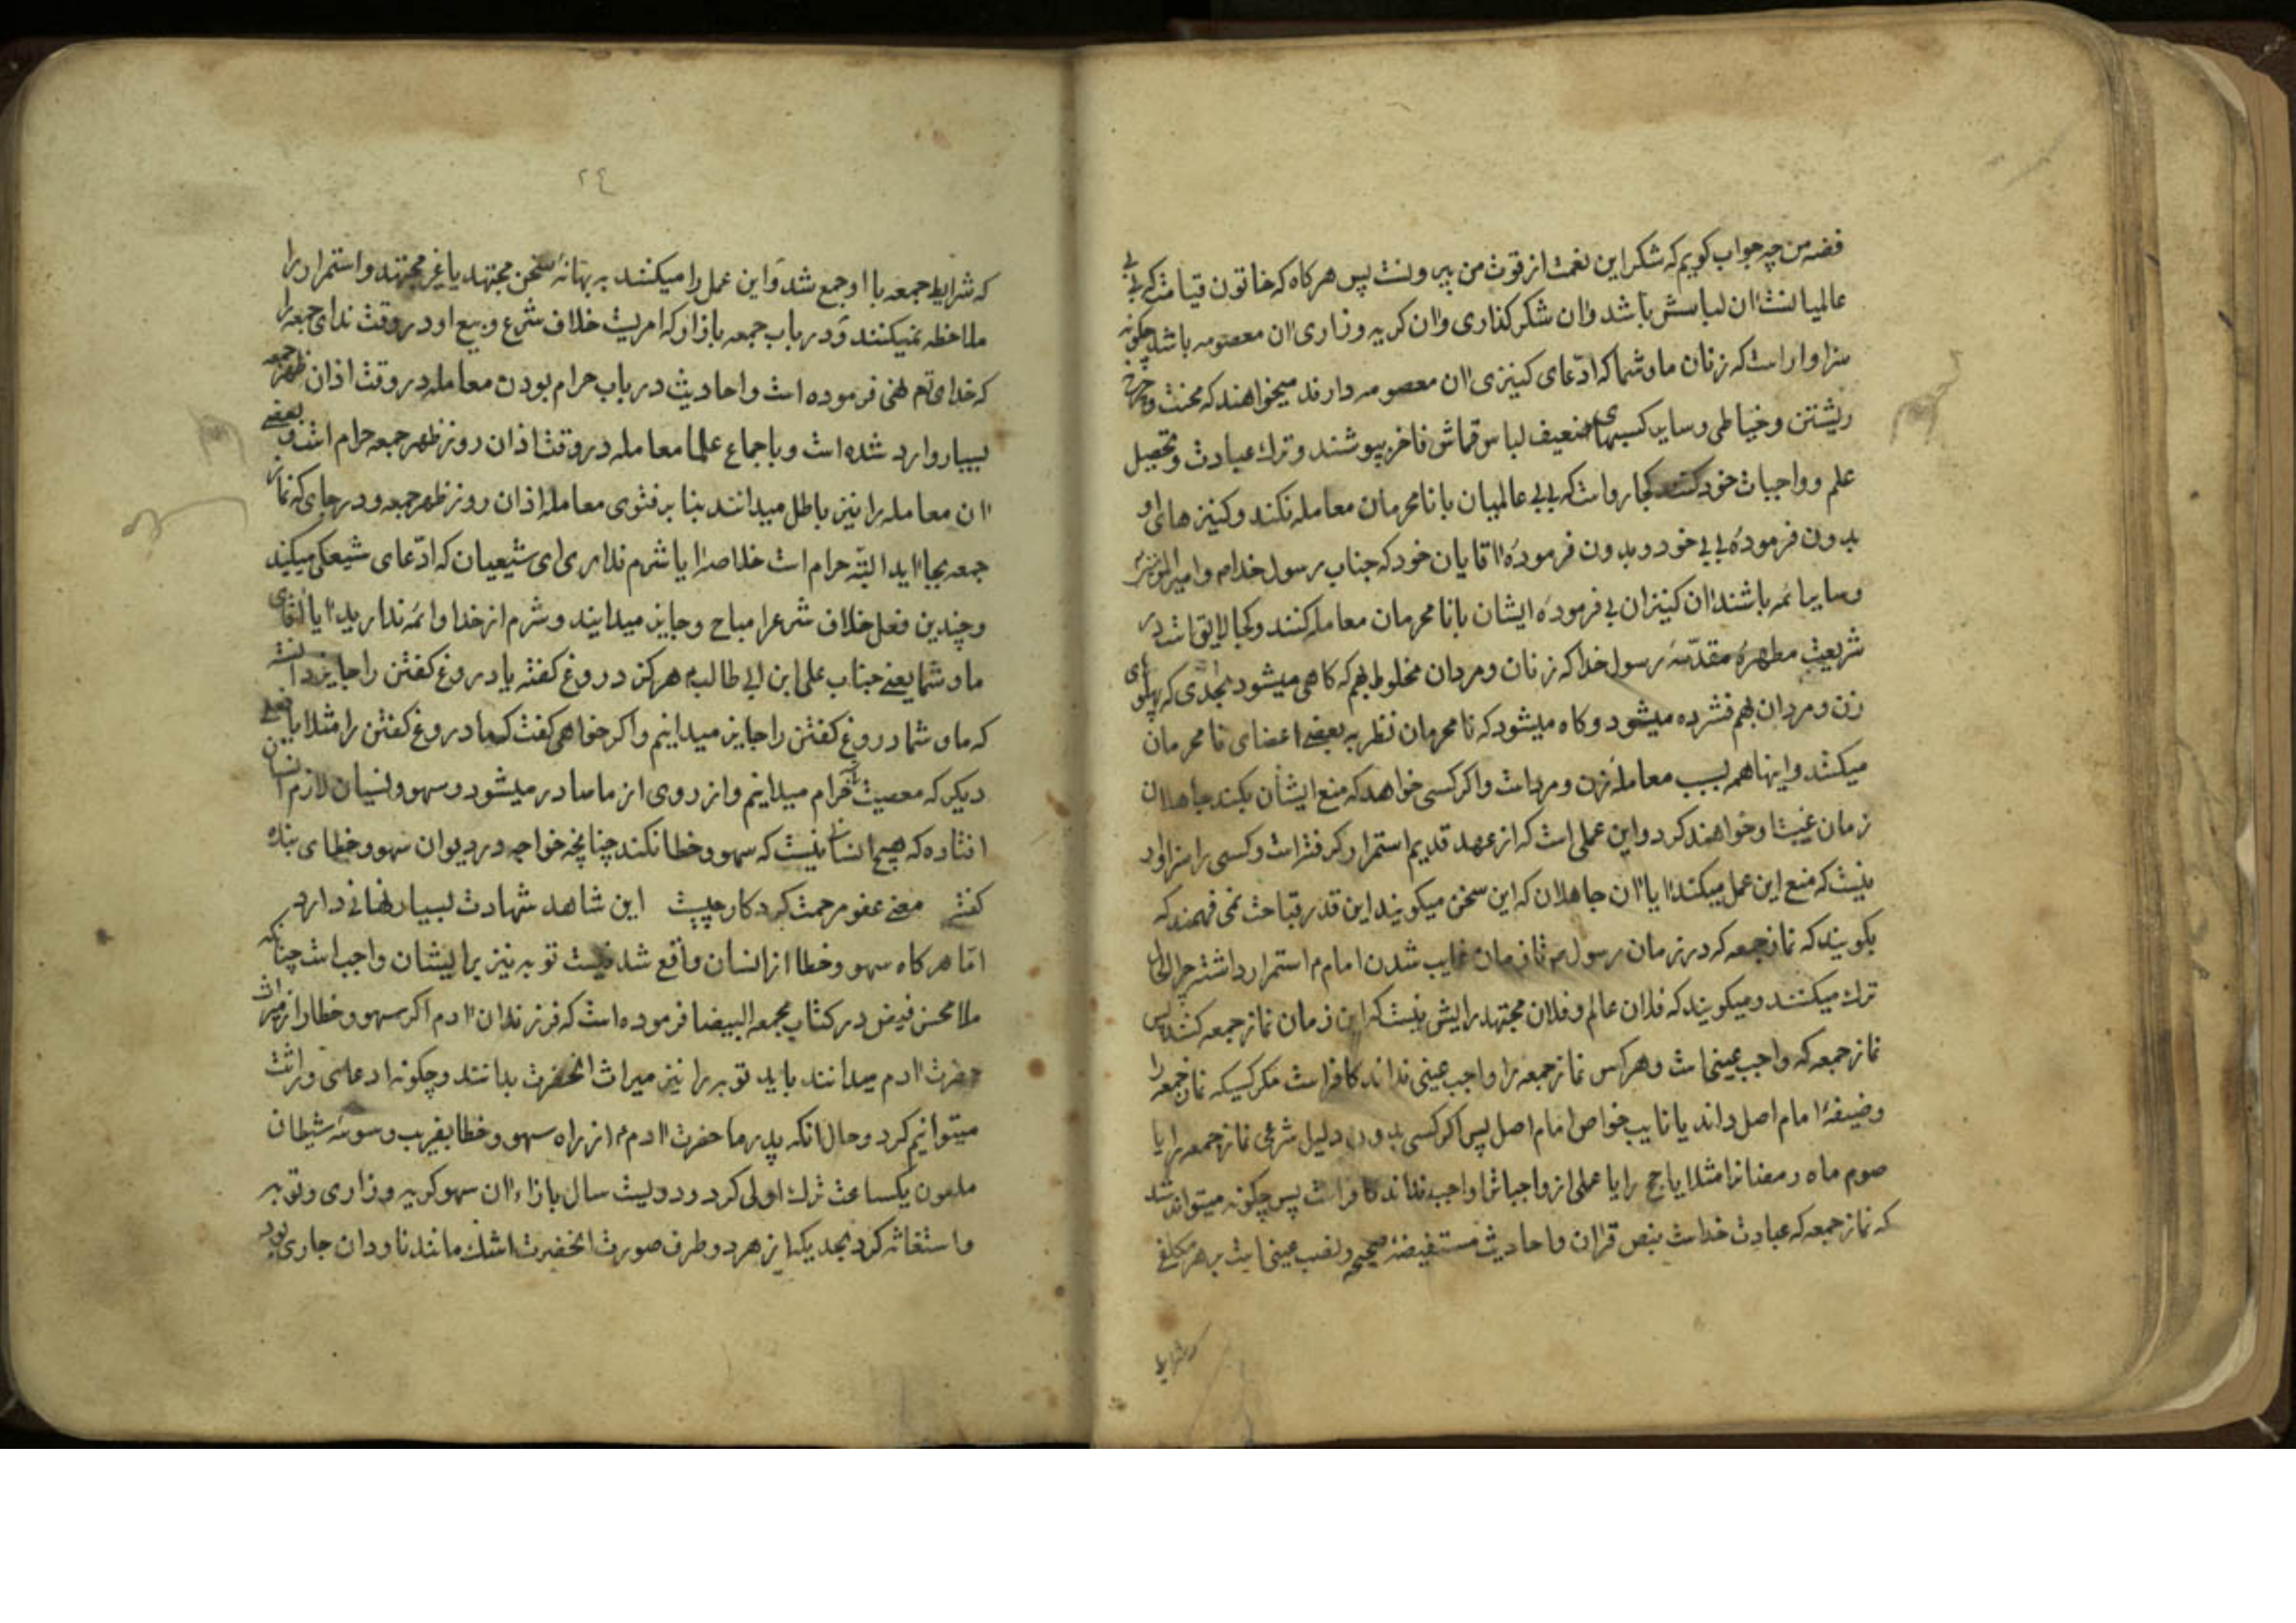 فضه من چه جواب کویم که شکر این نعمت از قوت من بیرونست پس هرکاه که خاتون قیامت که بی بی
عالمیانست ان لباسش باشد و ان شکر کذاری و ان کریه و زاری ان معصومه باشد چکونه
سزاوار است که زنان ما و شما که ادّعای کنیزی ان معصومه دارند میخواهند که محنت و چرخ
ریشتن و خیاطی و سایر کسبهای ضعیف لباس قماش فاخر بپوشند و ترك عبادت و تحصیل
علم و واجبات خود کنند کجا رواست که بی بی عالمیان با نامحرمان معامله نکند و کنیزهای او
بدون فرمودهٔ بی بی خود و بدون فرمودهٔ اقایان خود که جناب رسول خدام و امیرالمومنین
و سایر ائمه باشند ان کنیزان بی فرمودهٔ ایشان با نامحرمان معامله کنند و کجا لایق است در
شریعت مطهرهٔ مقدّسهٔ رسول خدا که زنان و مردان مخلوط بهم که کاهی میشود بحدّی که پهلوی
زن و مردان بهم فشرده میشود و کاه میشود که نامحرمان نظر به بعضی اعضای نامحرمان
میکنند و اینها همه بسبب معاملهٔ زن و مرد است و اکر کسی خواهد که منع ایشان بکند جاهلان
زمان غیبت او خواهند کرد و این عملی است که از عهد قدیم استمرار کرفته است و کسی را سزاوار
نیست که منع این عمل میکند ایا ان جاهلان که این سخن میکویند این قدر قباحت نمی فهمند که
بکویند که نماز جمعه که در زمان رسول ص تا زمان غایب شدن امام م استمرار داشته چرا الحال
ترك میکنند و میکویند که فلان عالم و فلان مجتهد رایش نیست که این زمان نماز جمعه کنند پس
نماز جمعه که واجب عینی است و هرکس نماز جمعه را واجب عینی نداند کافر است مکر کسیکه نماز جمعه را
وضیفهٔ امام اصل داند یا نایب خواص امام اصل پس اکر کسی بدون دلیل شرعی نماز جمعه را یا
صوم ماه رمضانرا مثلا یا حج را یا عملی از واجباترا واجب نداند کافر است پس چکونه میتواند شد
که نماز جمعه که عبادت خداست بنص قران و احادیث مستفیضهٔ صحیحه و نصب عینی است بر هر مکلفی
که شرایط
٢٤
که شرایط جمعه با او جمع شد و این عمل را میکنند به بهانهٔ سخن مجتهد یا غیر مجتهد و استمرار را
ملاحظه نمیکنند و در باب جمعه بازار که امریست خلاف شرع و بیع او در وقت ندای جمعه را
که خدای تعم نهی فرموده است و احادیث در باب حرام بودن معامله در وقت اذان ظهر جمعه
بسیار وارد شده است و باجماع علما معامله در وقت اذان روز ظهر جمعه حرام است و بعضی
ان معامله را نیز باطل میدانند بنا بر فتوی معامله اذان روز ظهر جمعه و در جای که نماز
جمعه بجا اید البته حرام است خلاصه ایا شرم نداری ای شیعیان که ادّعای شیعکی میکنید
و چندین فعل خلاف شرع را مباح و جایز میدانید و شرم از خدا و ائمه ندارید ایا اقای
ما و شما یعنی جناب علی ابن ابی طالب ع هرکز دروغ کفته یا دروغ کفتن را جایز دانسته
که ما و شما دروغ کفتن را جایز میدانیم و اکر خواهی کفت که ما دروغ کفتن را مثلا یا فعلی
دیکر که معصیت است حرام میدانیم و از روی از ما صادر میشود و سهو و نسیان لازم انسان
افتاده که هیچ انسانی نیست که سهو و خطا نکند چنانچه خواجه در دیوان سهو و خطای بنده
کفتی معنی عفو مرحمت کردکار چیست این شاهد شهادت بسیار نهانی دارد
امّا هرکاه سهو و خطا از انسان واقع شد توبه نیز برایشان واجب است چنانکه
ملا محسن فیض در کتاب محجه البیضا فرموده است که فرزندان ادم اکر سهو و خطا را از میراث
حضرت ادم میدانند باید توبه را نیز میراث انحضرت بدانند و چکونه ادعای وراثت
میتوانیم کرد و حال انکه پدر ما حضرت ادم ع از راه سهو و خطا بفریب وسوسهٔ شیطان
ملعون یکساعت ترك اولی کرد و دویست سال بازاء ان سهو کریه و زاری و توبه
و استغاثه کرد بحدیکه از هر دو طرف صورت انحضرت اشك مانند ناودان جاری بود